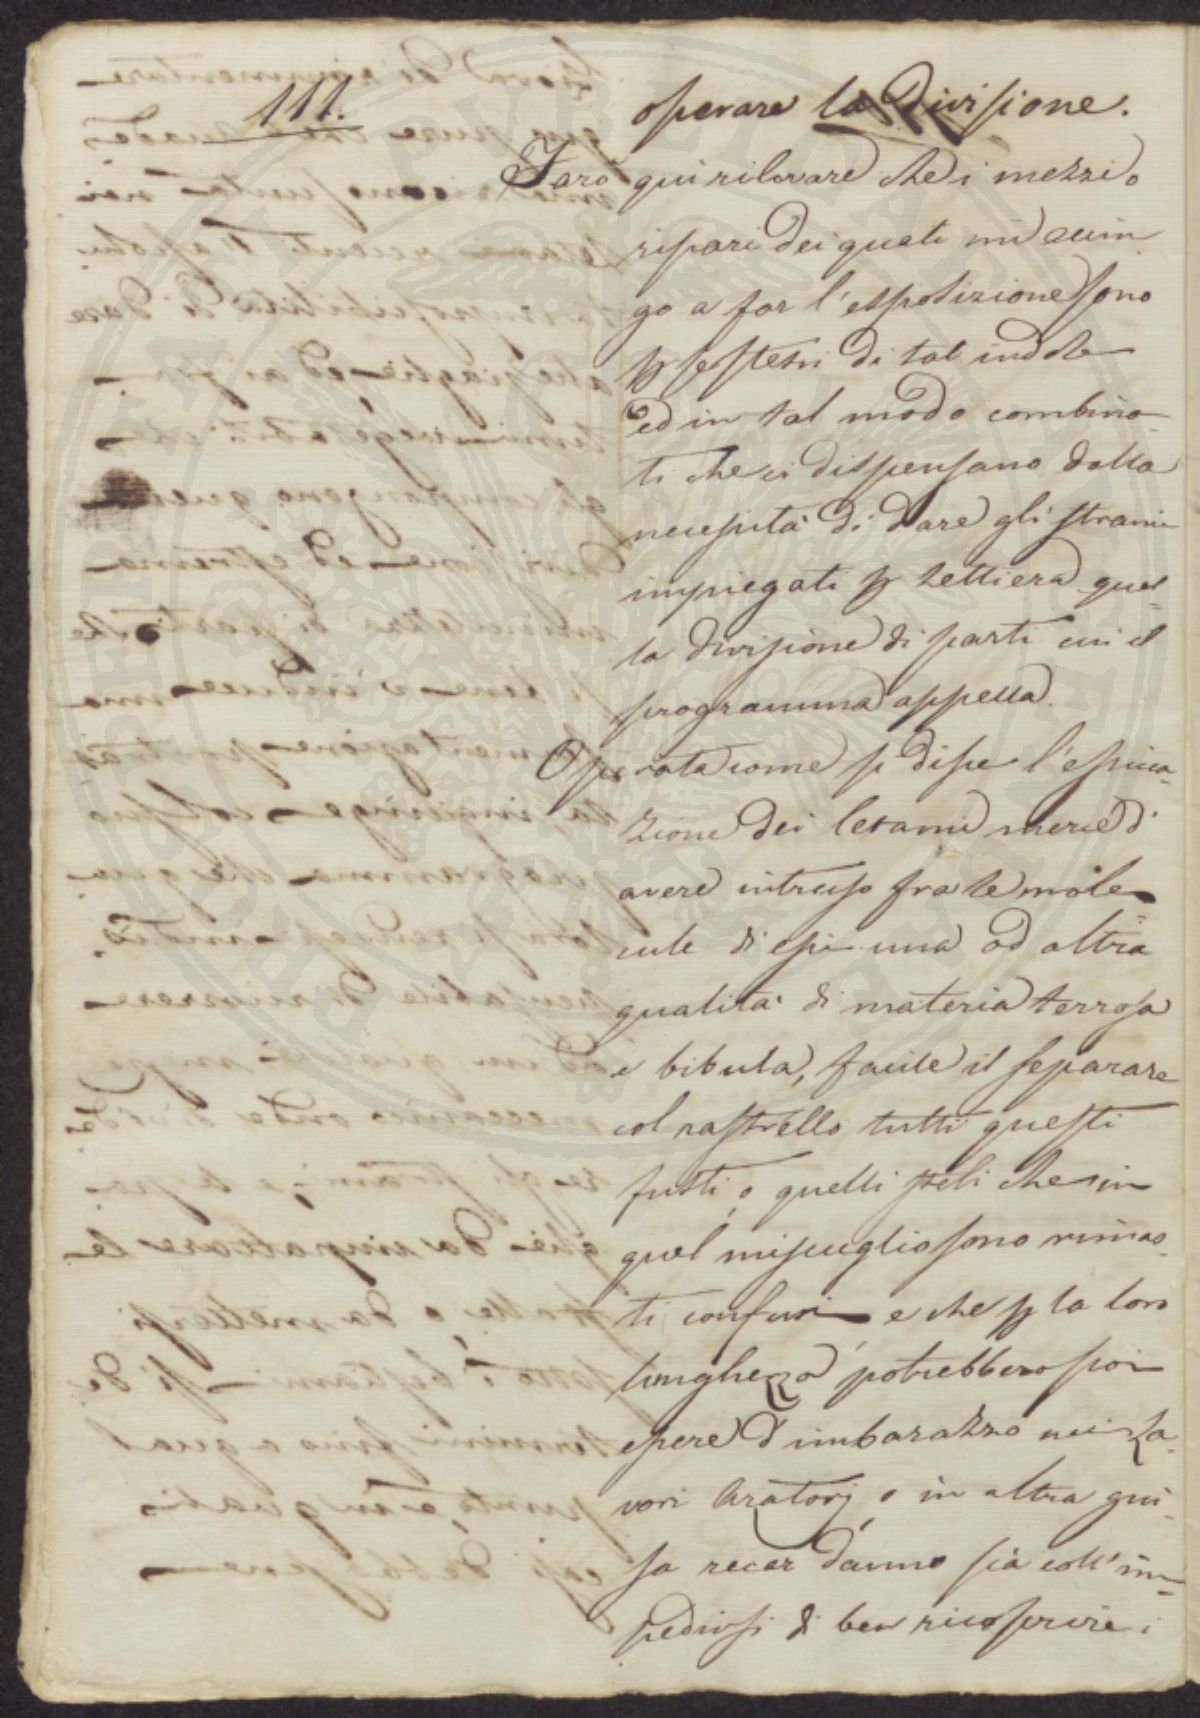 111.
operare la divisione.
Farò qui rilevare che i mezzi o
ripari dei quali mi accin
go a far l'esposizione sono
p se stessi di tal indole
ed in tal modo combina-
ti che ci dispensano dalla
necessità di dare gli strami
impiegati p lettiera quel-
la divisione di parti cui il
programma appella.
Operata come si disse l'essicca-
zione dei letami mercè d'
avere intruso fra le mole
cule di essi una od altra
qualità di materia terrosa
e bibula, facile il separare
col rastrello tutti questi
fusti, o quelli steli che in
quel miscuglio sono rimas-
ti confusi e che p la loro
lunghezza potrebbero poi
essere d'imbarazzo nei la-
vori aratorj, o in altra gui-
sa recar danno sia coll'im-
pedirsi di ben ricoprire i